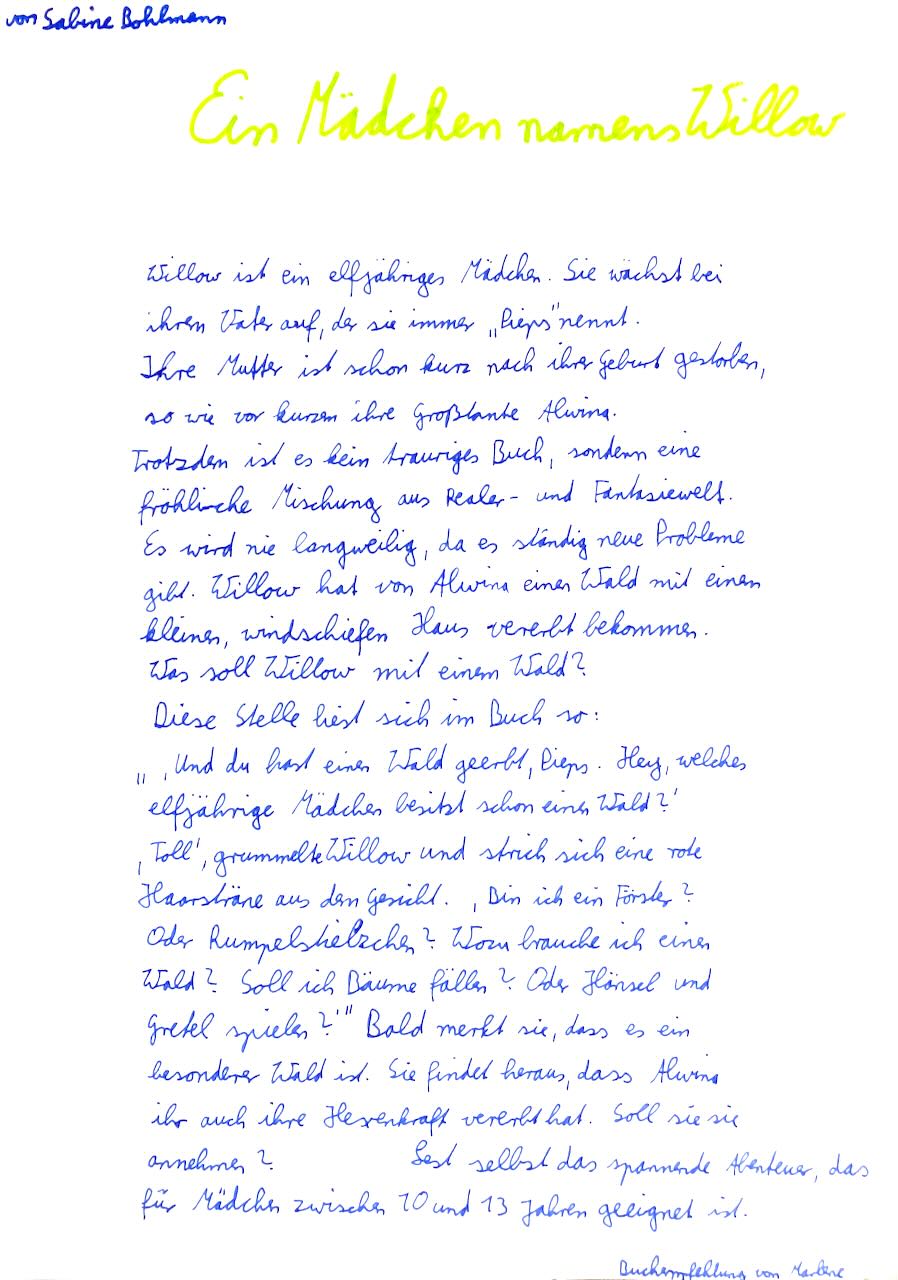 von Sabine Bohlmann
Ein Mädchen namens Willow
Willow ist ein elfjähriges Mädchen. Sie wächst bei
ihrem Vater auf, der sie immer „Pieps" nennt.
Ihre Mutter ist schon kurz nach ihrer Geburt gestorben,
so wie vor kurzem ihre Großtante Alwina.
Trotzdem ist es kein trauriges Buch, sondern eine
fröhliche Mischung aus Realer- und Fantasiewelt.
Es wird nie langweilig, da es ständig neue Probleme
gibt. Willow hat von Alwina einen Wald mit einem
kleinen, windschiefen Haus vererbt bekommen.
Was soll Willow mit einem Wald?
Diese Stelle liest sich im Buch so:
„ ‚Und du hast einen Wald geerbt, Pieps. Hey, welches
elfjährige Mädchen besitzt schon einen Wald?'
‚Toll', grummelte Willow und strich sich eine rote
Haarsträne aus dem Gesicht. ‚Bin ich ein Förster?
Oder Rumpelstielzchen? Wozu brauche ich einen
Wald? Soll ich Bäume fällen? Oder Hänsel und
Gretel spielen?'" Bald merkt sie, dass es ein
besonderer Wald ist. Sie findet heraus, dass Alwina
ihr auch ihre Hexenkraft vererbt hat. Soll sie sie
annehmen? Lest selbst das spannende Abenteuer, das
für Mädchen zwischen 10 und 13 Jahren geeignet ist.
Buchempfehlung von Marlene